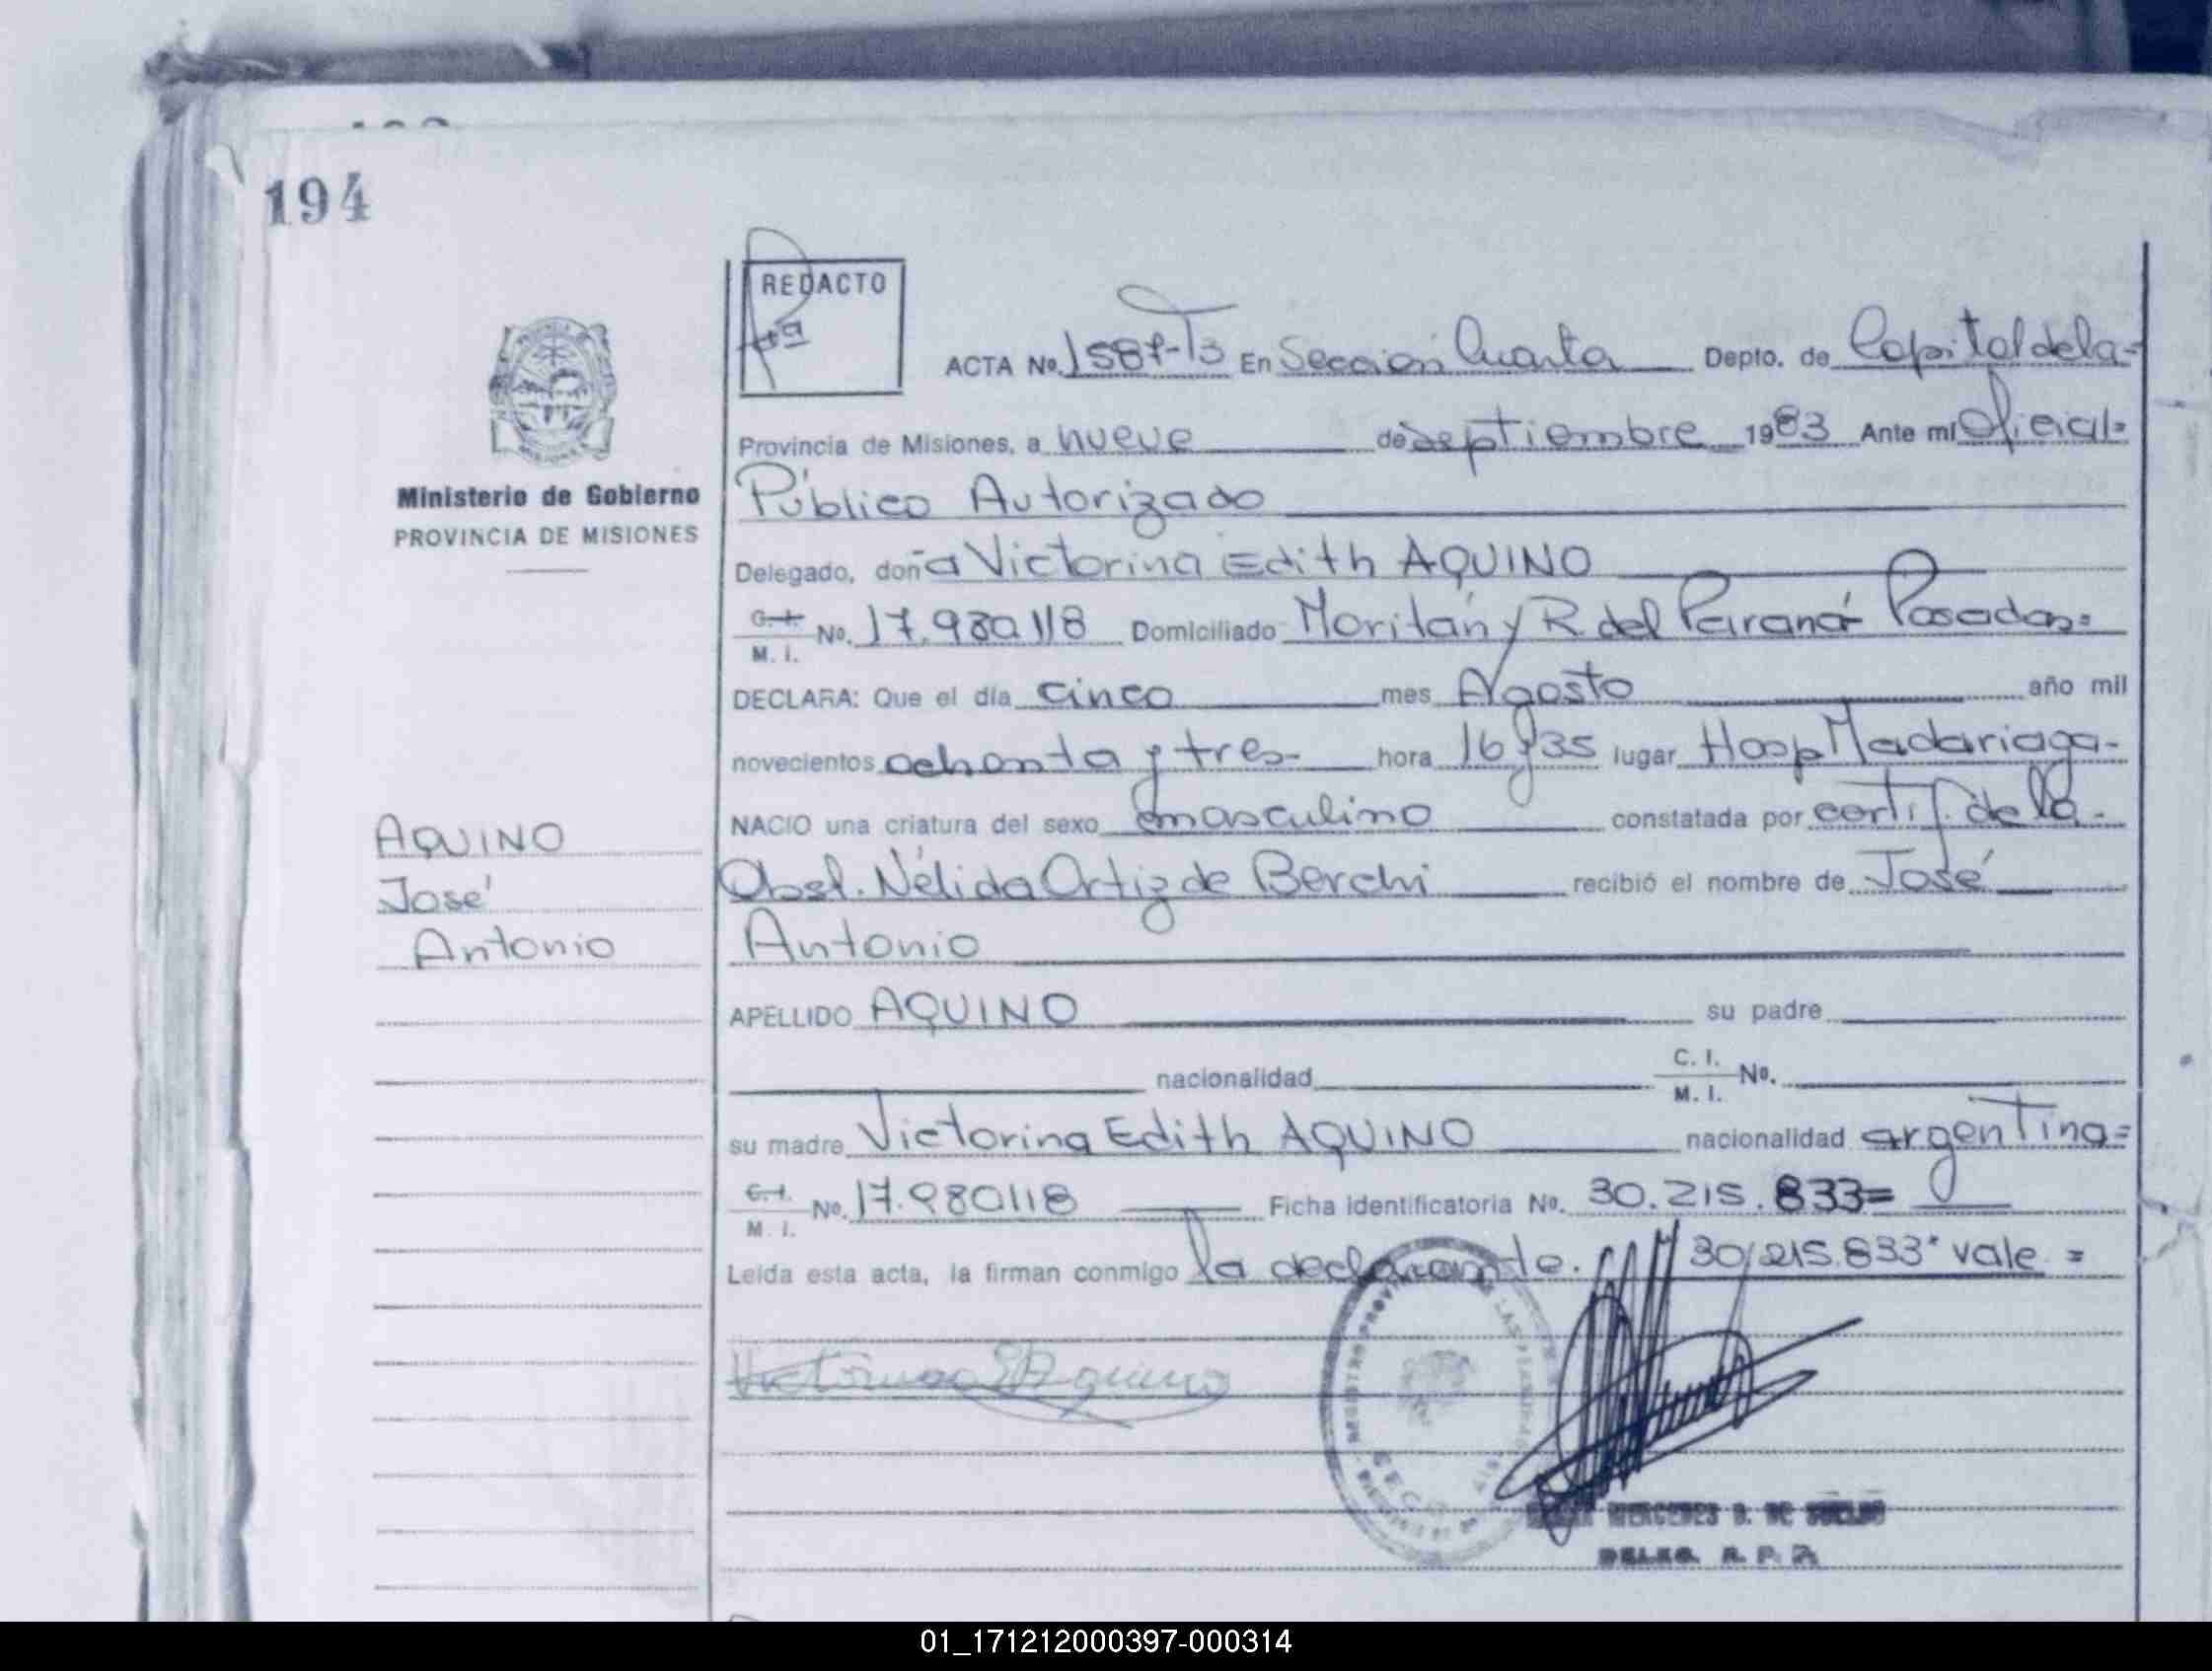 194
REDACTO
ACTA Nº 1587-T3 En Sección Cuarta Depto. de Capital de la=
Provincia de Misiones, a nueve de septiembre 1983 Ante mí Oficial=
Ministerio de Gobierno
PROVINCIA DE MISIONES
Público Autorizado
Delegado, doña Victorina Edith AQUINO
C. I. M. I. Nº. 17.980118 Domiciliado Moritán y R. del Paraná Posadas=
DECLARA: Que el día cinco mes Agosto año mil
novecientos ochenta y tres- hora 16 y 35 lugar Hosp Madariaga-
NACIO una criatura del sexo masculino constatada por certif. de la-
Obst. Nélida Ortiz de Berchi recibió el nombre de José
Antonio
AQUINO
José
Antonio
APELLIDO AQUINO su padre
nacionalidad C. I. M. I. Nº.
su madre Victorina Edith AQUINO nacionalidad argentina=
C. I. M. I. Nº. 17.980118 Ficha identificatoria Nº. 30.215.833=
Leída esta acta, la firman conmigo la declarante. 30/215.833" vale =
Victorina E Aquino
REGISTRO PROVINCIAL DE LAS PERSONAS
MERCEDES D. DE
DELEG. R. P. P.
01_171212000397-000314